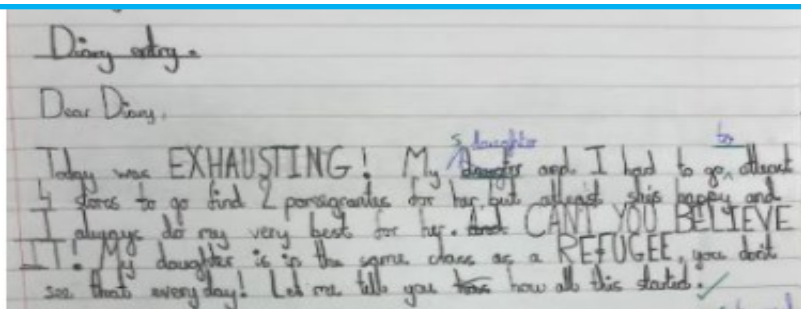 Diary entry.
Dear Diary,
s daughter to
Today was EXHAUSTING! My daughter and I had to go atleast
4 stores to go find 2 pomigranites for her, but atleast she's happy and
I always do my very best for her. And CANT YOU BELIEVE
IT! My daughter is in the same class as a REFUGEE, you don't
see that everyday! Let me tell you how all this started.